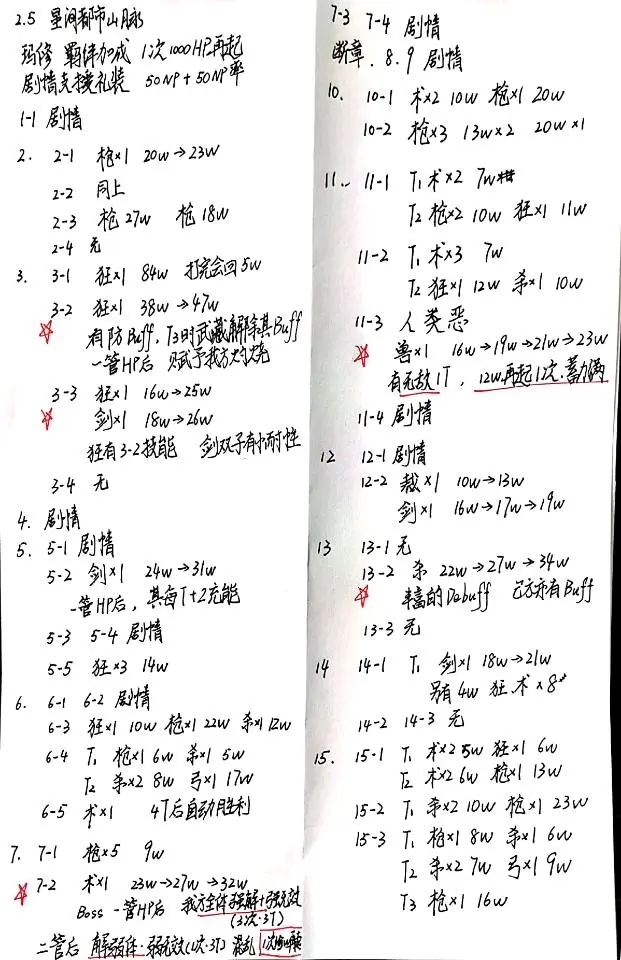 2.5 星间都市山脉
玛修 羁绊加成 1次1000HP再起
剧情支援礼装 50NP+50NP率
1-1 剧情
2. 2-1 枪×1 20w→23w
2-2 同上
2-3 枪27w 枪18w
2-4 无
3. 3-1 狂×1 84w 打完会回5w
3-2 狂×1 38w→47w
☆ 有防Buff,T3时武藏解除其Buff
一管HP后 赋予我方灼烧
3-3 狂×1 16w→25w
☆ 剑×1 18w→26w
狂有3-2技能 剑双子有个耐性
3-4 无
4. 剧情
5. 5-1 剧情
5-2 剑×1 24w→31w
一管HP后,其每T+2充能
5-3 5-4 剧情
5-5 狂×3 14w
6. 6-1 6-2 剧情
6-3 狂×1 10w 枪×1 22w 杀×1 12w
6-4 T1 枪×1 6w 杀×1 5w
T2 杀×2 8w 弓×1 17w
6-5 术×1 4T后自动胜利
7. 7-1 枪×5 9w
☆ 7-2 术×1 23w→27w→32w
Boss一管HP后 我方全体强解+强无效
(3次·3T)
二管后 解弱体·弱无效(1次·3T) 混乱
7-3 7-4 剧情
断章. 8. 9 剧情
10. 10-1 术×2 10w 枪×1 20w
10-2 枪×3 13w×2 20w×1
11. 11-1 T1 术×2 7w
T2 枪×2 10w 狂×1 11w
11-2 T1 术×3 7w
T2 狂×1 12w 杀×1 10w
11-3 人类恶
☆ 兽×1 16w→19w→21w→23w
有无敌1T,12w再起1次.蓄力满
11-4 剧情
12 12-1 剧情
12-2 裁×1 10w→13w
剑×1 16w→17w→19w
13 13-1 无
13-2 杀 22w→27w→34w
☆ 丰富的Debuff 己方亦有Buff
13-3 无
14 14-1 T1 剑×1 18w→21w
另有4w 狂.术×8
14-2 14-3 无
15. 15-1 T1 术×2 5w 狂×1 6w
T2 术×2 6w 枪×1 13w
15-2 T1 杀×2 10w 枪×1 23w
15-3 T1 枪×1 8w 杀×1 6w
T2 杀×2 7w 弓×1 9w
T3 枪×1 16w